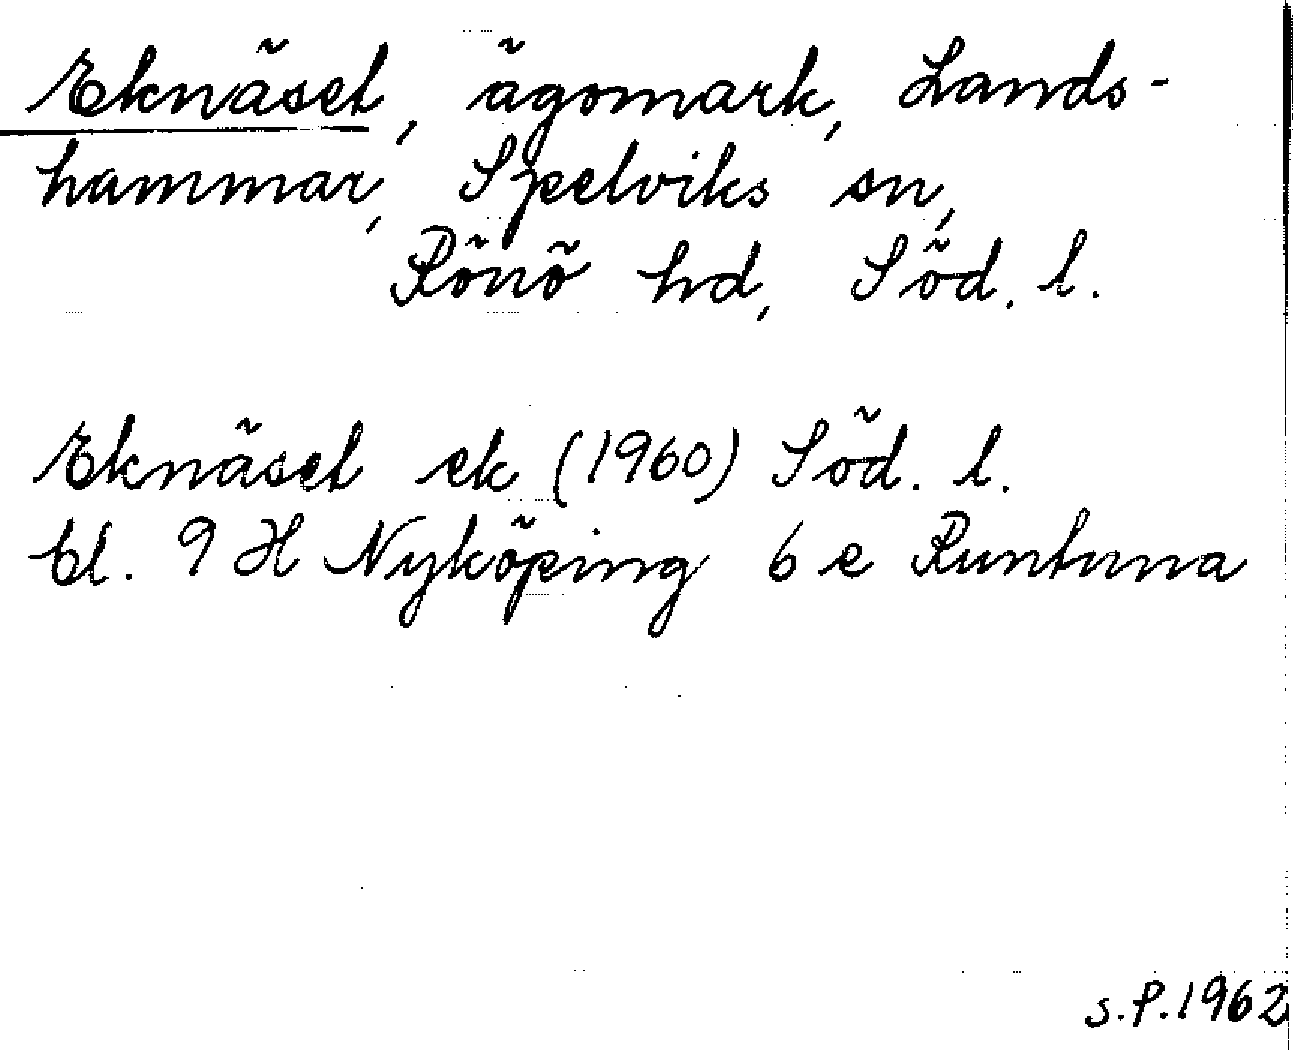 Eknäset, ägomark, Lands-
hammar, Spelviks sn,
Rönö hd, Söd. l.
Eknäset ek (1960) Söd. l.
bl. 9 H Nyköping 6 e Runtuna
S.P. 1962